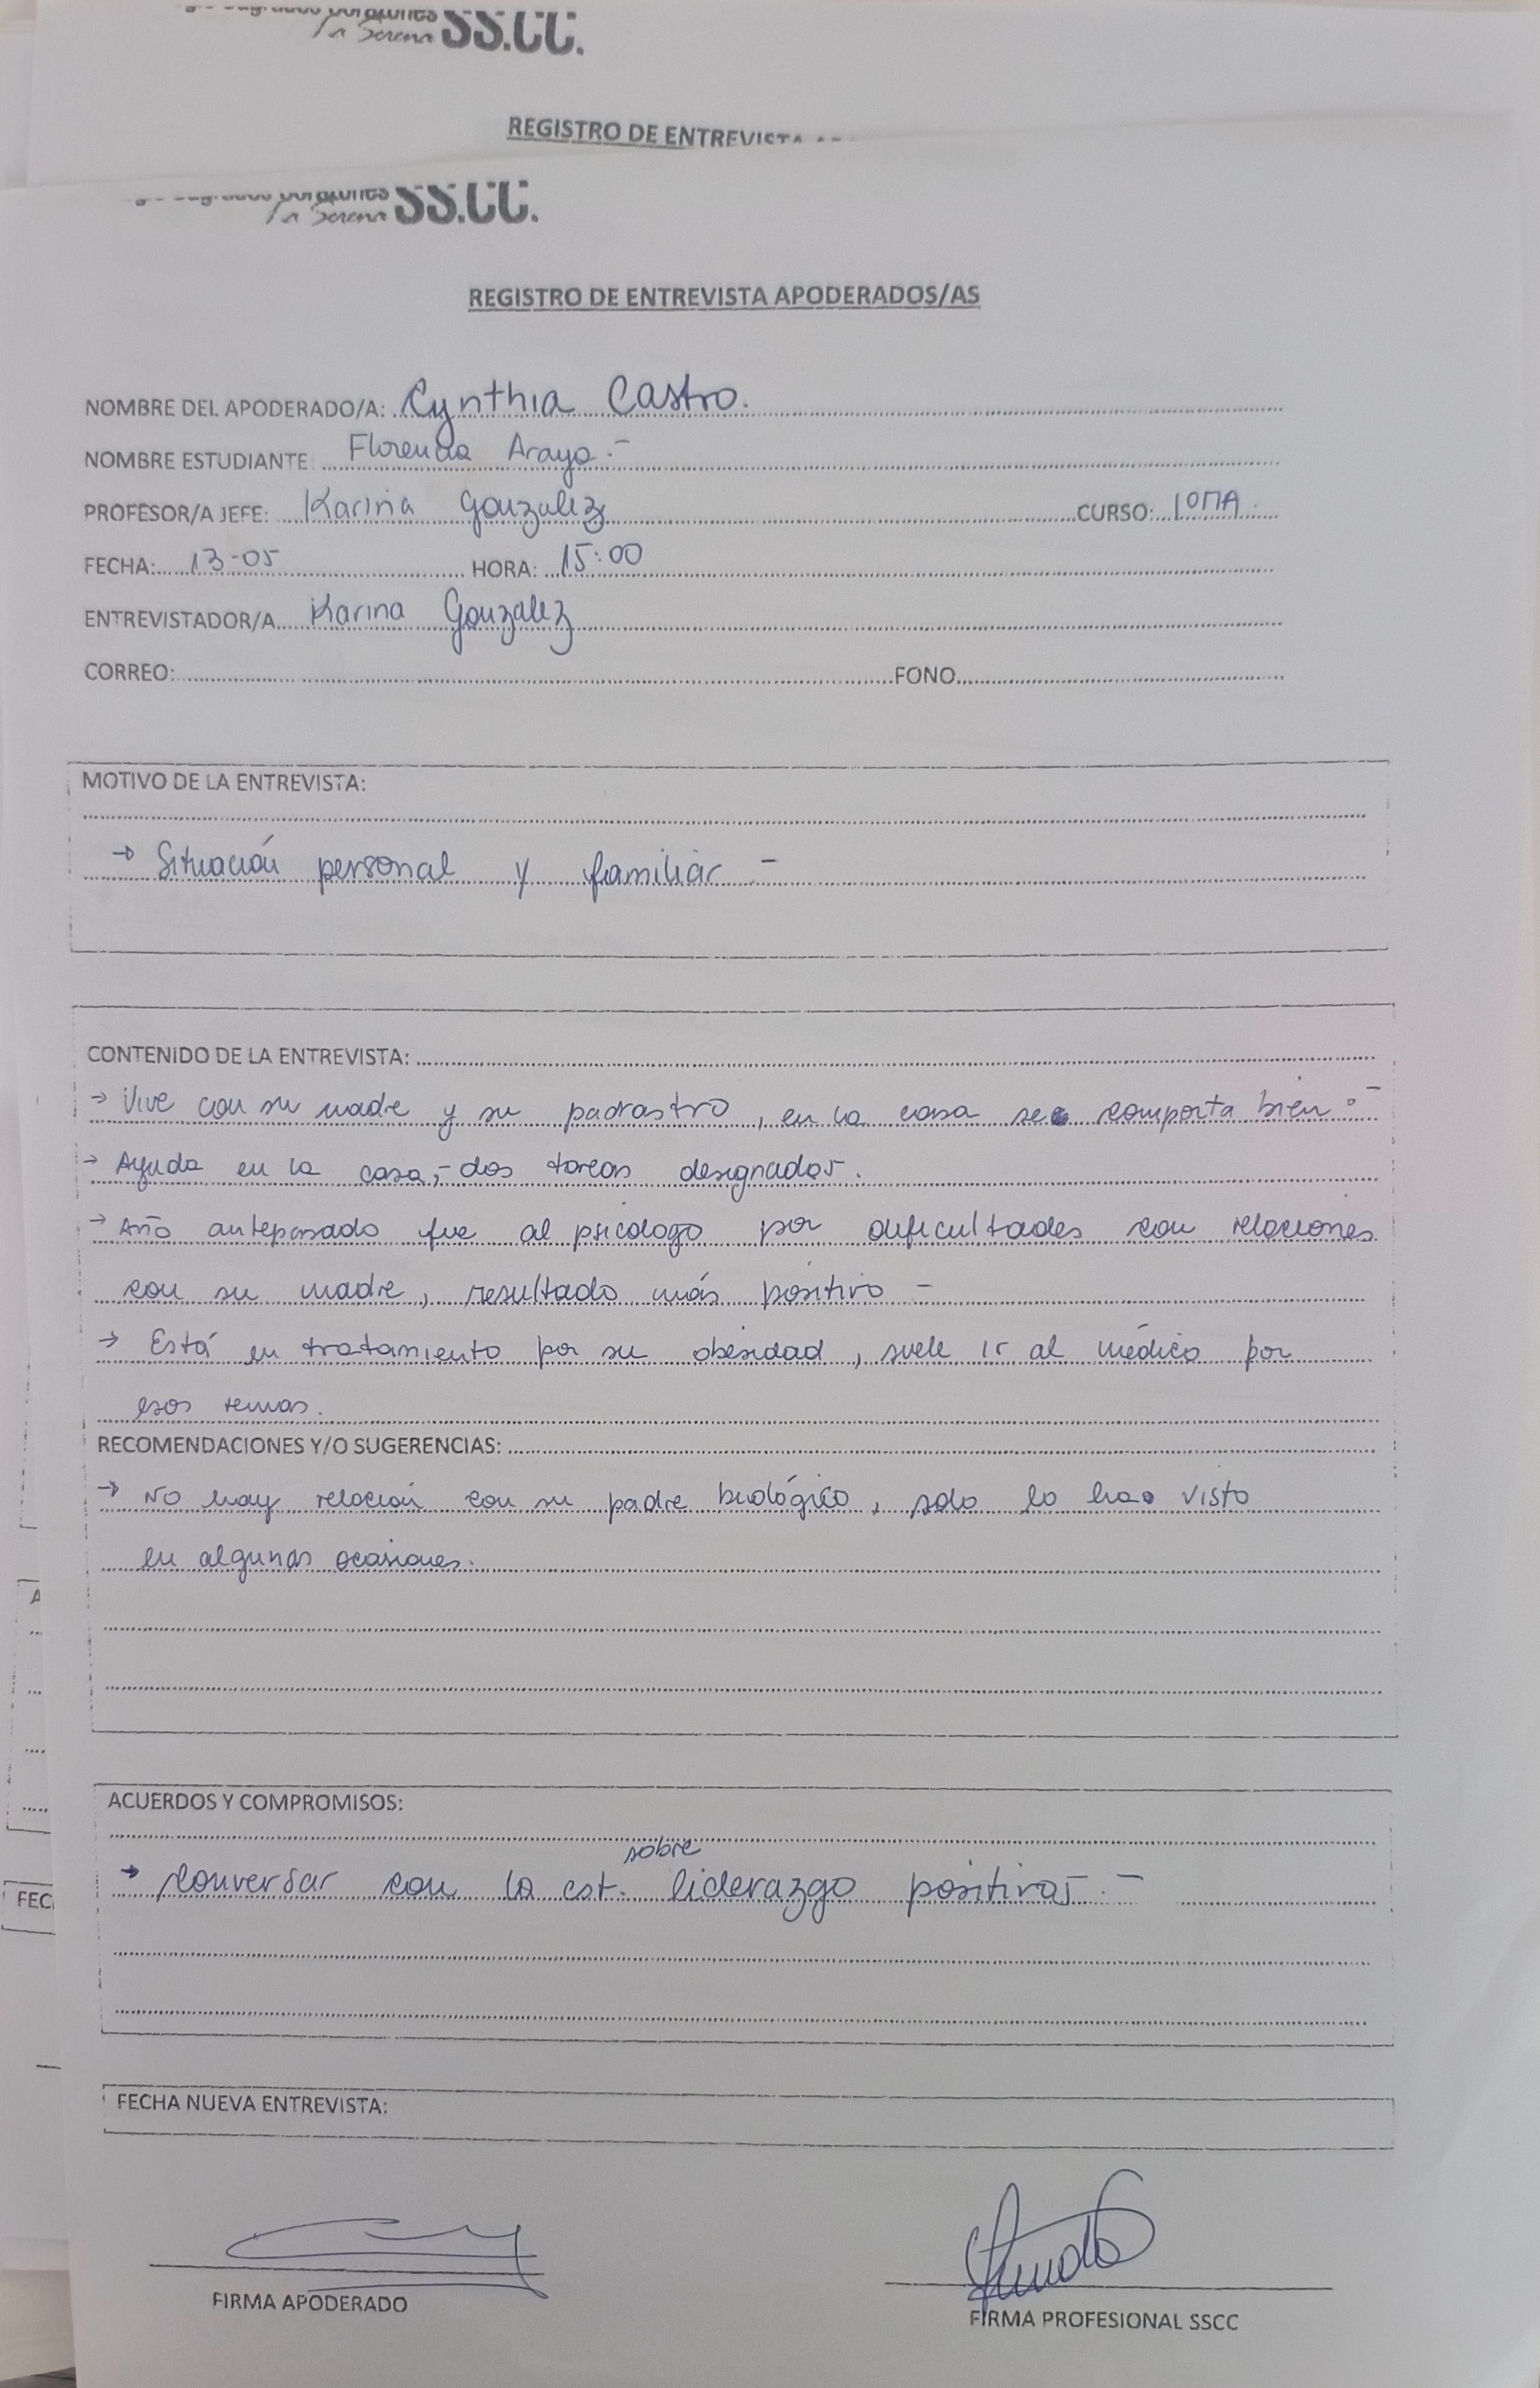 La Serena SS.CC.
REGISTRO DE ENTREVISTA
La Serena SS.CC.
REGISTRO DE ENTREVISTA APODERADOS/AS
NOMBRE DEL APODERADO/A: Cynthia Castro.
NOMBRE ESTUDIANTE: Florencia Araya.-
PROFESOR/A JEFE: Karina Gonzalez CURSO: 1ºMA
FECHA: 13-05 HORA: 15:00
ENTREVISTADOR/A Karina Gonzalez
CORREO: FONO
MOTIVO DE LA ENTREVISTA:
→ Situación personal y familiar -
CONTENIDO DE LA ENTREVISTA:
→ Vive con su madre y su padrastro, en la casa se comporta bien.-
→ Ayuda en la casa,- dos tareas designadas.
→ Año antepasado fue al psicólogo por dificultades con relaciones
con su madre, resultado más positivo -
→ Está en tratamiento por su obesidad, suele ir al médico por
esos temas.
RECOMENDACIONES Y/O SUGERENCIAS:
→ No hay relación con su padre biológico, solo lo ha visto
en algunas ocasiones.
ACUERDOS Y COMPROMISOS:
sobre
→ Conversar con la est. liderazgo positivas.-
FEC
FECHA NUEVA ENTREVISTA:
FIRMA APODERADO
FIRMA PROFESIONAL SSCC